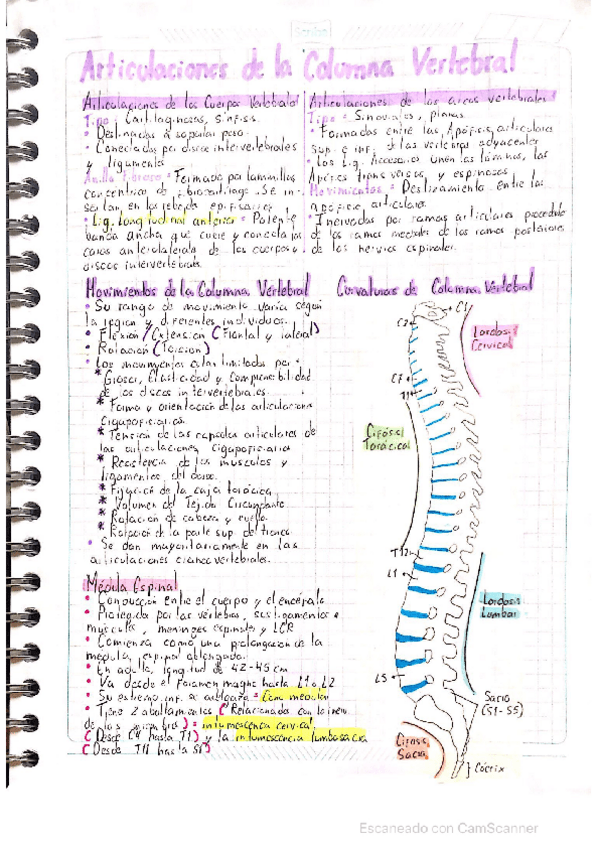 Scribe
Articulaciones de la Columna Vertebral
Articulaciones de los Cuerpos Vertebrales
Tipo: Cartilaginosas, Sínfisis.
• Destinadas a soportar peso
• Conectadas por discos intervertebrales
y ligamentos
Anillo Fibroso = Formado por laminillas
concéntricas de fibrocartílago. Se in-
sertan en los rebordes epifisarios
• Lig. Longitudinal anterior = Potente
banda ancha que cubre y conecta las
caras anterolaterales de los cuerpos y
discos intervertebrales.
Articulaciones de los arcos vertebrales
Tipo = Sinoviales, planas
• Formadas entre las Apófisis articulares
sup. e inf. de las vertebras adyacentes
• Los Lig. Accesorios unen las láminas, las
Apófisis transversas y espinosas
Movimientos = Deslizamiento entre las
apófisis articulares.
• Inervadas por ramas articulares procedentes
de los ramos mediales de los ramos posteriores
de los nervios espinales.
Movimientos de la Columna Vertebral
• Su rango de movimiento varía según
la región y diferentes individuos.
• Flexión / Extensión (Frontal y lateral)
• Rotación (Torsión)
• Los movimientos están limitados por:
* Grosor, Elasticidad y Compresibilidad
de los discos intervertebrales.
* Forma y orientación de las articulaciones
Cigapofisarias
* Tensión de las capsulas articulares de
las articulaciones cigapofisarias
* Resistencia de los musculos y
ligamentos del dorso.
* Fijación de la caja torácica
* Volumen del Tejido Circundante
* Rotación de cabeza y cuello.
* Rotación de la parte sup. del tronco
• Se dan mayoritariamente en las
articulaciones craneovertebrales.
Médula Espinal
• Conducción entre el cuerpo y el encéfalo
• Protegida por las vertebras, sus ligamentos y
musculos, meninges espinales y LCR
• Comienza como una prolongación de la
médula espinal oblongada.
• En adulto, longitud de 42-45 cm
• Va desde el foramen magno hasta L1 o L2
• Su extremo inf. se adelgaza = Cono medular
• Tiene 2 abultamientos (Relacionados con la inerv.
de los miembros) = intumescencia cervical
(Desde C4 hasta T1) y la intumescencia lumbosacra
(Desde T11 hasta S1)
Curvaturas de Columna Vertebral
C1
C2
Lordosis
Cervical
C7
T1
Cifosis
Torácica
T12
L1
Lordosis
Lumbar
L5
Sacro
(S1-S5)
Cifosis
Sacra
Cóccix
Escaneado con CamScanner